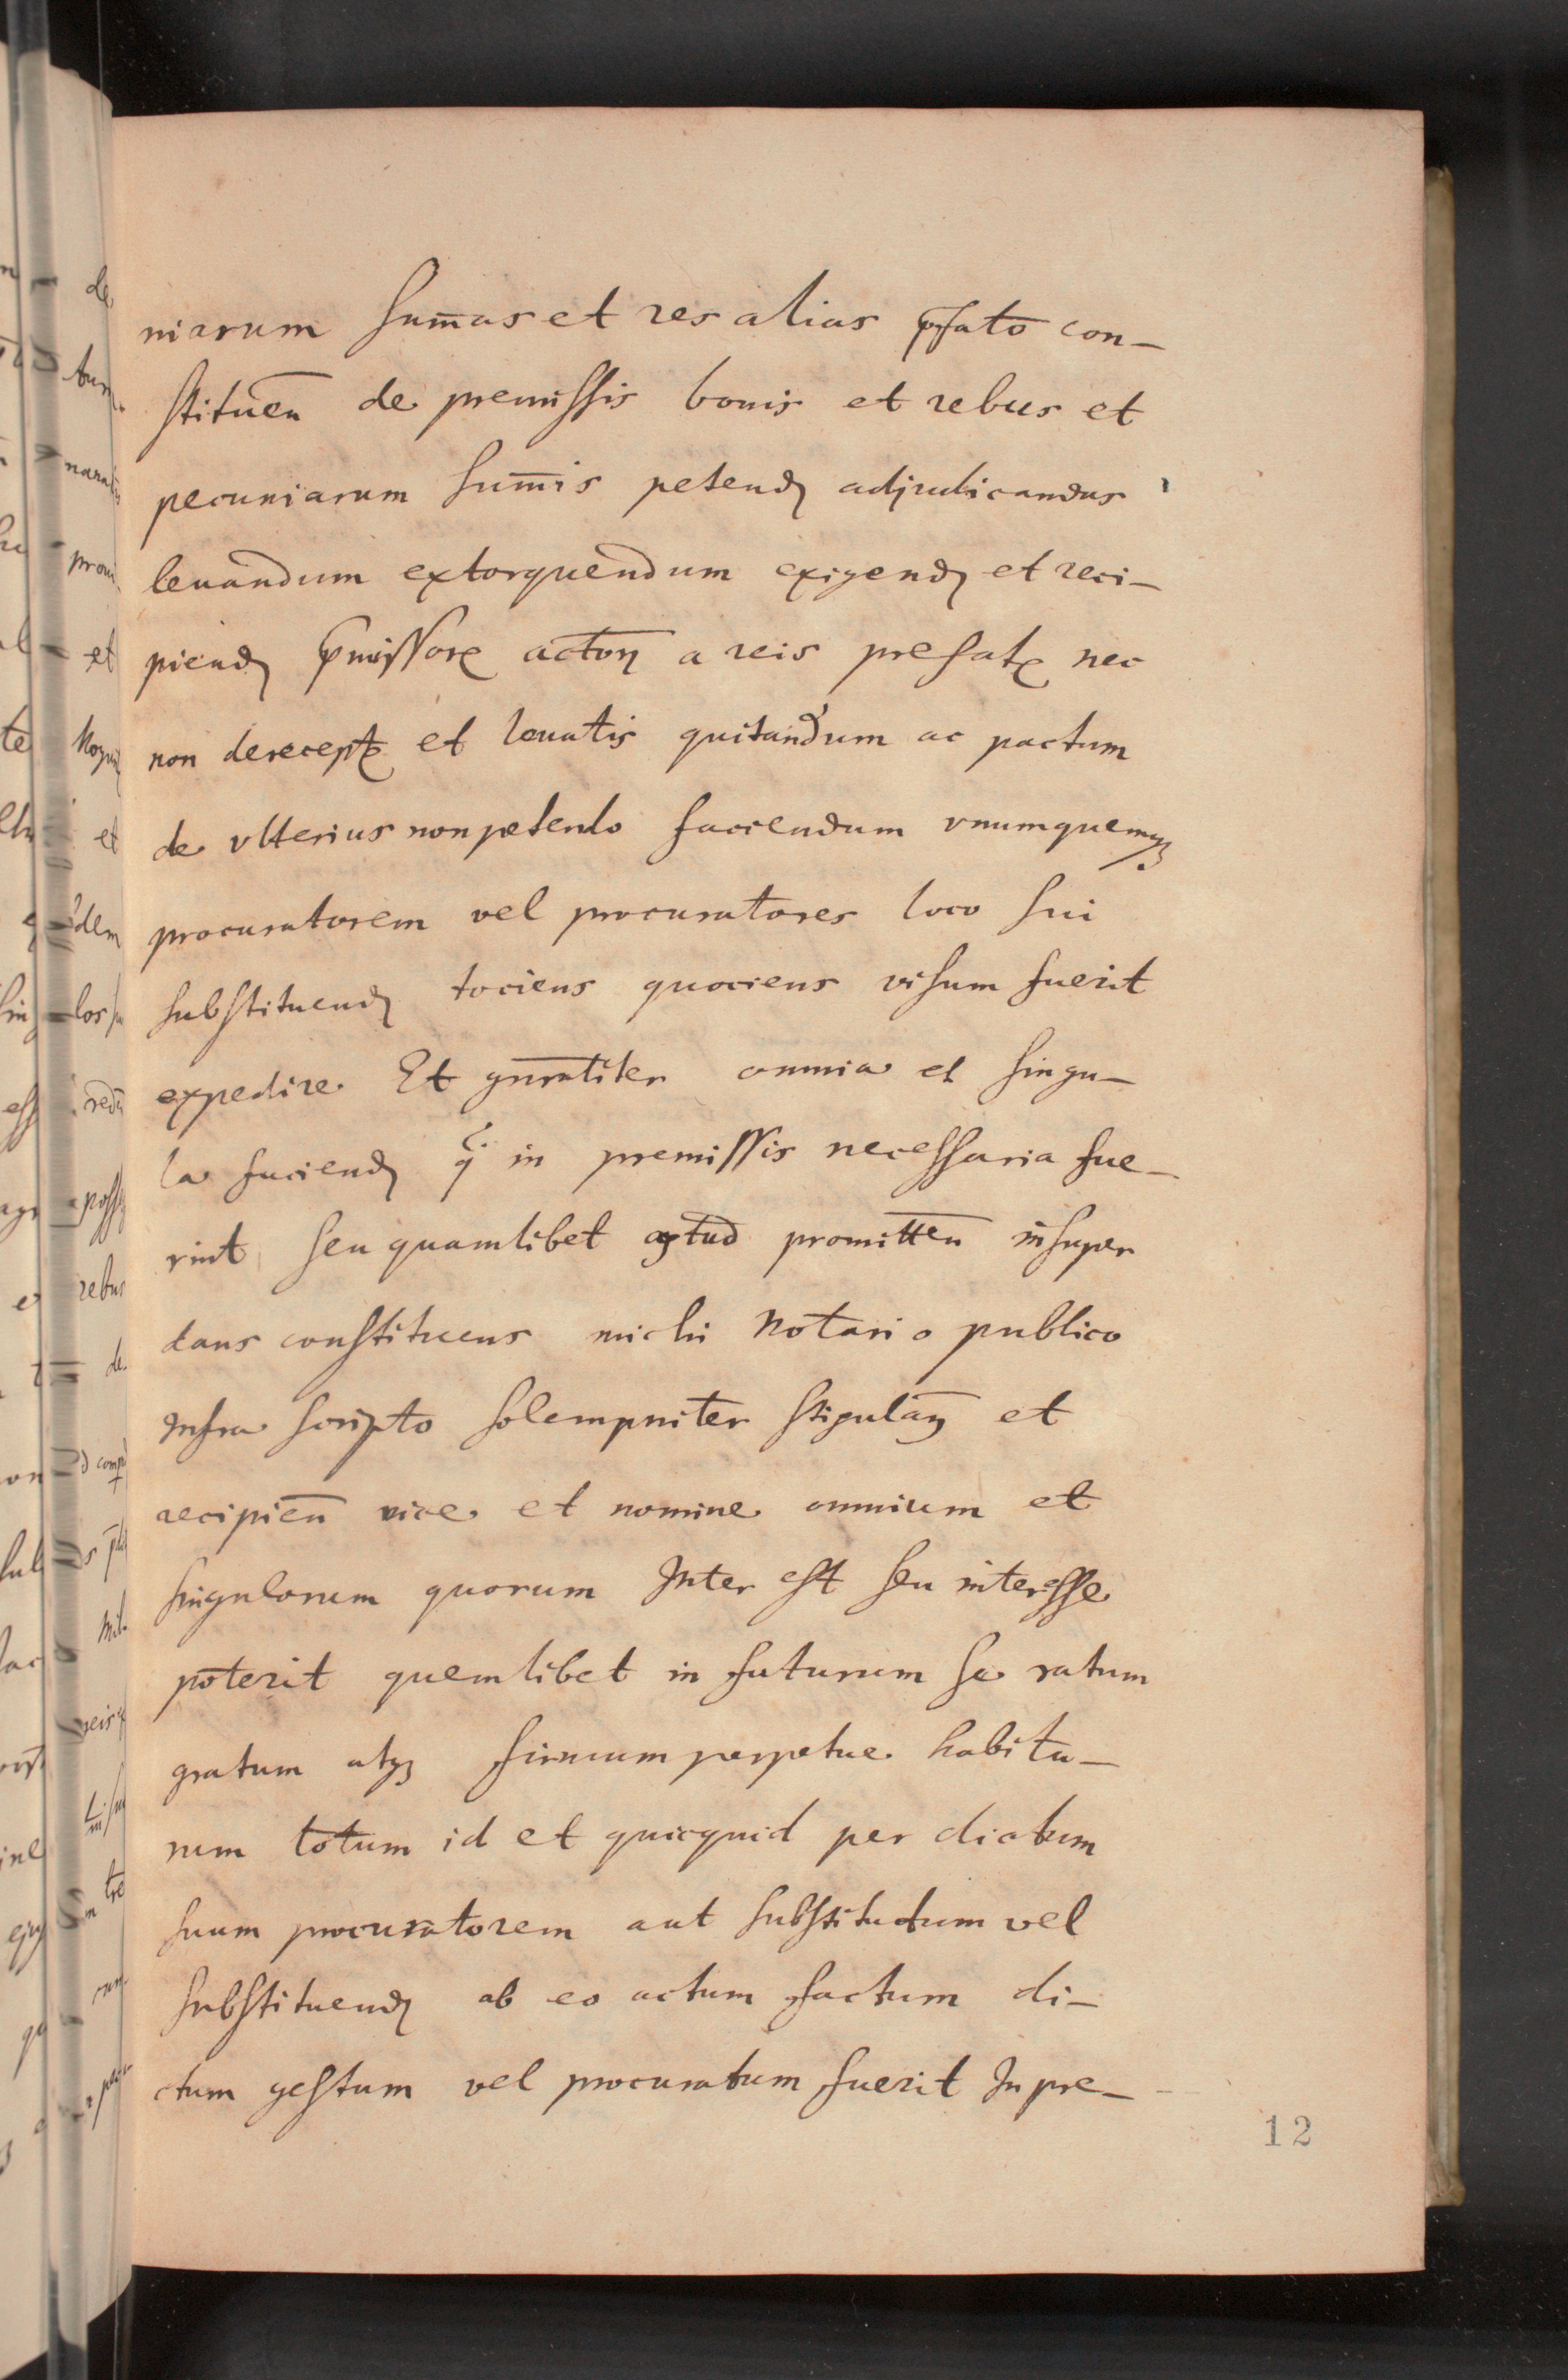 niarum sum̄as et res alias p̄fato con-
stituen̄ de premissis bonis et rebus et
pecuniarum sum̄is petend̄ adjudicandus
leuandum extorquendum exigend̄ et reci-
piend̄ p̄missorꝝ actorꝝ a reis prefatꝭ nec
non de receptꝭ et leuatis quitandum ac pactum
de vlterius non petendo faciendum vnumquemqꝫ
procuratorem vel procuratores loco sui
substituend̄ tociens quociens visum fuerit
expedire Et gn̄raliter omnia et singu-
la faciend̄ q̄ in premissis necessaria fue-
rint seu quamlibet promitten̄ insuper
dans constituens michi Notario publico
Infra scripto solempniter stipulan̄ et
recipien̄ vice et nomine omnium et
singulorum quorum Inter est seu interesse
poterit quemlibet in futurum se ratum
gratum atqꝫ firmum perpetue habitu-
rum totum id et quicquid per dictum
suum procuratorem aut substitutum vel
substituend̄ ab eo actum factum di-
ctum gestum vel procuratum fuerit In pre-
12